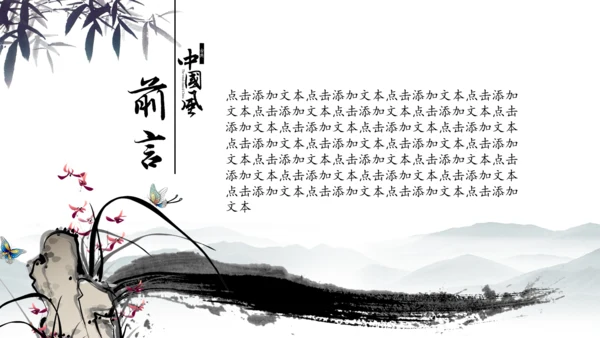 中国风
前言
点击添加文本点击添加文本点击添加文本点击添加
文本点击添加文本点击添加文本点击添加文本点击
添加文本点击添加文本点击添加文本点击添加文本
点击添加文本点击添加文本点击添加文本点击添加
文本点击添加文本点击添加文本点击添加文本点击
添加文本点击添加文本点击添加文本点击添加文本
点击添加文本点击添加文本点击添加文本点击添加
文本